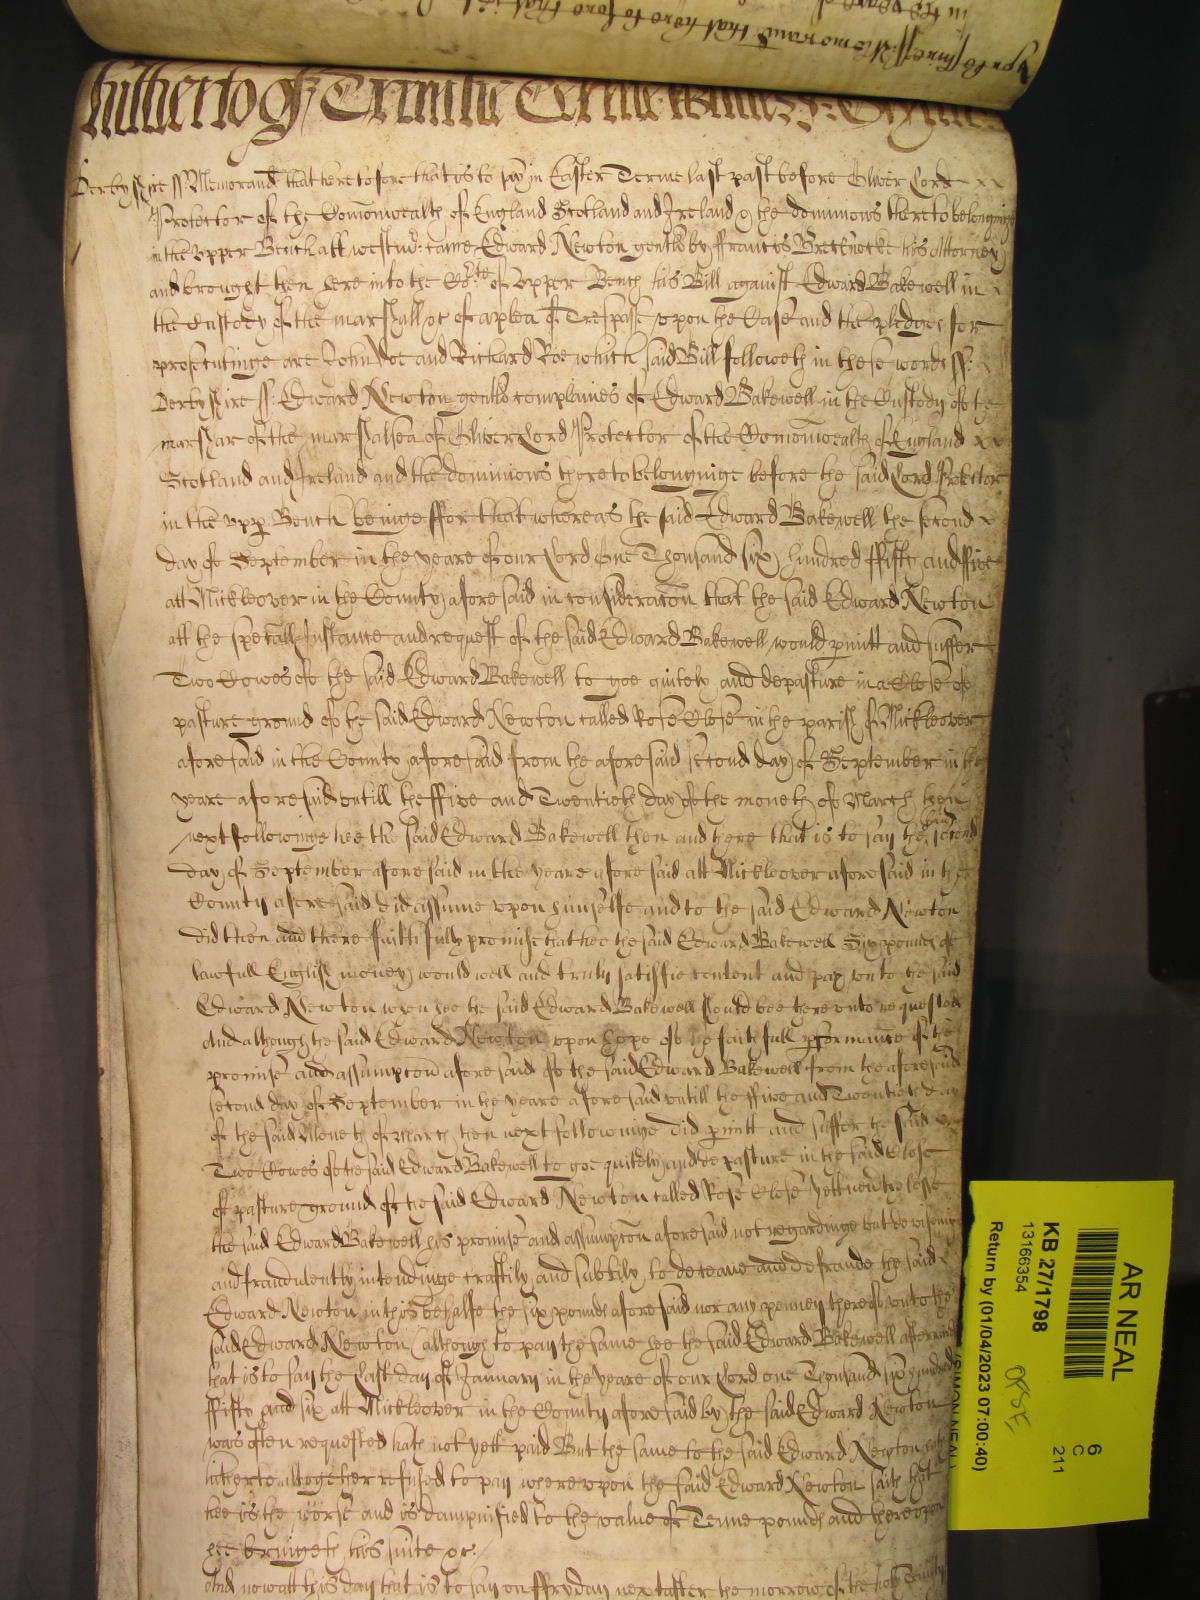 in the yeare
ss: Memorand that heretofore that is to
hitherto &c Trinitie Terme
Derbyshire ss: Memorand that heretofore that is to say in Easter Terme last past before Oliver Lord
Protector of the Comonwealth of England Scotland and Ireland & the dominions thereto belonginge
in the upper Bench att westmr: came Edward Newton gentl by ffrancis Brecknocke his Attorney
and brought then here into the Court of Upper Bench his Bill against Edward Bakewell in
the Custody of the marshall &c of a plea of Trespasse upon the Case and the pledges for
prosecutinge are John Doe and Richard Roe which said Bill followeth in these words ss:
Derbyshire ss: Edward Newton gentl complaines of Edward Bakewell in the Custody of the
marshar of the marshalsea of Oliver Lord Protector of the Comonwealth of England
Scotland and Ireland and the dominions thereto belonginge before the said Lord Protector
in the upp Bench beinge ffor that whereas the said Edward Bakewell the second
day of September in the yeare of our Lord One Thousand six hundred ffifty and ffive
att Mickleover in the County aforesaid in consideracon that the said Edward Newton
att the speciall Instance and request of the said Edward Bakewell would pmitt and suffer
Two Cowes of the said Edward Bakewell to goe quitely and depasture in a Close of
pasture ground of the said Edward Newton called Rose Close in the parish of Mickleover
aforesaid in the County aforesaid from the aforesaid second day of September in the
yeare aforesaid untill the ffive and Twentieth day of the moneth of March then
next followinge hee the said Edward Bakewell then and there that is to say the said second
day of September aforesaid in the yeare aforesaid att Mickleover aforesaid in the
County aforesaid did assume upon himselfe and to the said Edward Newton
did then and there faithfully promise that hee the said Edward Bakewell Six pounds of
lawfull English money would well and truly satisfie content and pay unto the said
Edward Newton when hee the said Edward Bakewell should bee thereunto requested
And although the said Edward Newton upon hope of the faithfull pformance of the
promise and assumpcon aforesaid of the said Edward Bakewell from the aforesaid
second day of September in the yeare aforesaid untill the ffive and Twentieth day
of the said Moneth of March then next followinge did pmitt and suffer the said
Two Cowes of the said Edward Bakewell to goe quitely and depasture in the said Close
of pasture ground of the said Edward Newton called Rose Close Yett neverthelesse
the said Edward Bakewell his promise and assumpcon aforesaid not regardinge but devisinge
and fraudulently intendinge craftily and subtily to deceave and defraude the said
Edward Newton in this behalfe the six pounds aforesaid nor any penney thereof unto the
said Edward Newton (although to pay the same hee the said Edward Bakewell afterwards
that is to say the Last day of January in the yeare of our Lord one Thousand six hundred
ffifty and six att Mickleover in the County aforesaid by the said Edward Newton
was often requested hath not yett paid But the same to the said Edward Newton hath
hitherto altogether refused to pay whereupon the said Edward Newton saith that
hee is the worse and is dampnified to the value of Tenne pounds and thereupon
hee bringeth his suite &c.
And now att this day that is to say on ffryday next after the morrow of the holy Trinity
AR NEAL
6
C
211
KB 27/1798
13166354
Return by (01/04/2023 07:00:40)
(SIMON NEAL)